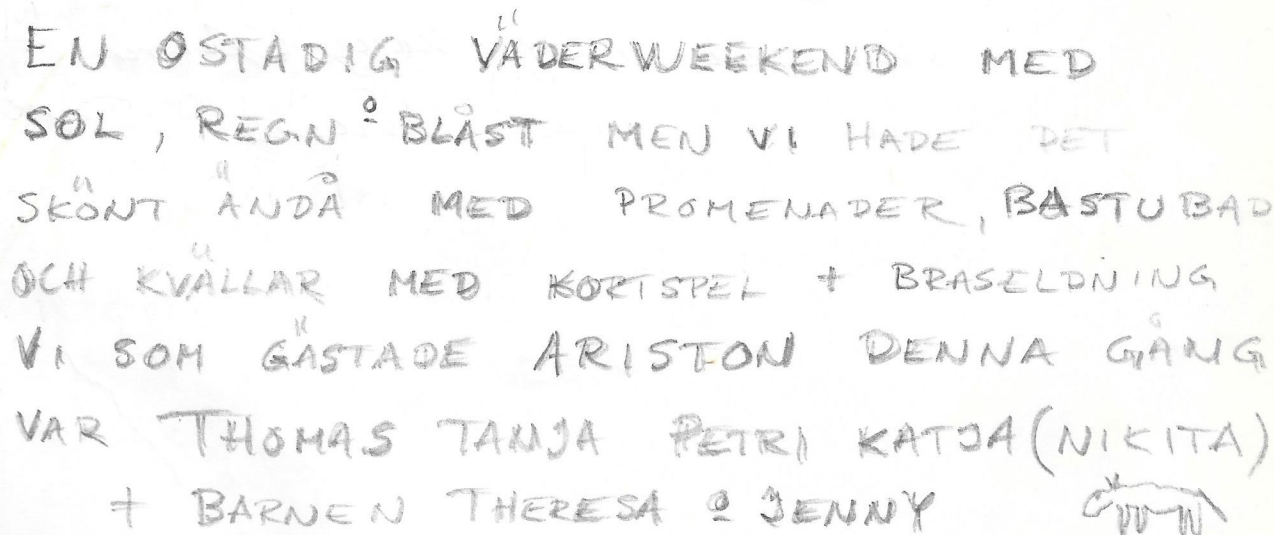 EN OSTADIG VÄDERWEEKEND MED
SOL, REGN o BLÅST MEN VI HADE DET
SKÖNT ÄNDÅ MED PROMENADER, BASTUBAD
OCH KVÄLLAR MED KORTSPEL + BRASELDNING
VI SOM GÄSTADE ARISTON DENNA GÅNG
VAR THOMAS TANJA PETRI KATJA (NIKITA)
+ BARNEN THERESA o JENNY